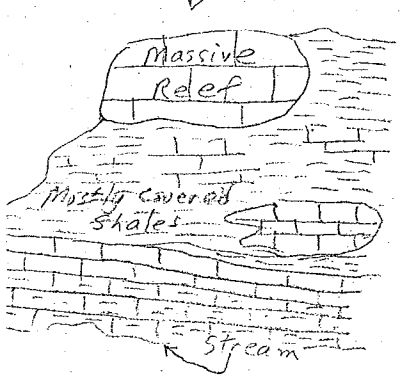 Massive
Relef
Mostly covered
Shales
Stream